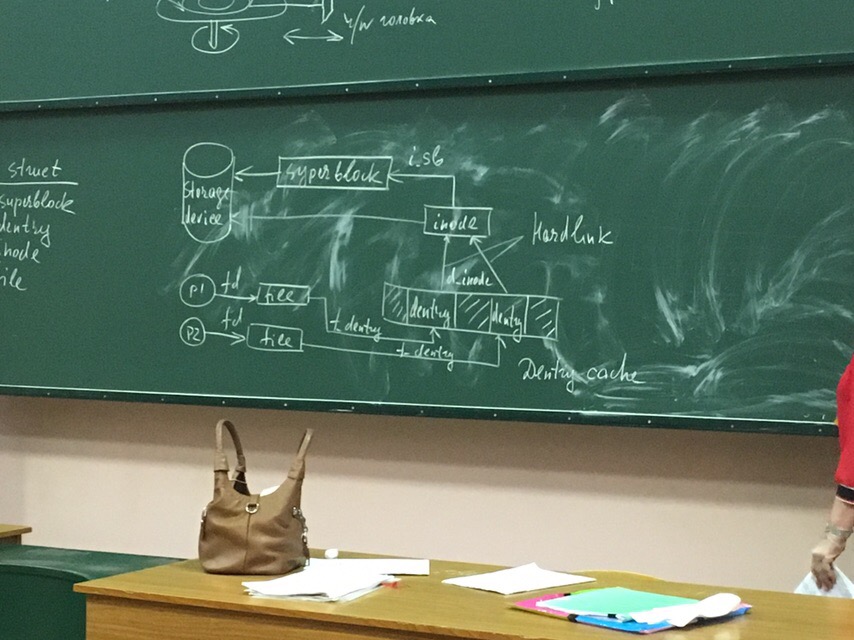 ч/w головка
struct
superblock
dentry
inode
file
Storage
device
superblock
i_sb
inode
Hardlink
d_inode
P1
fd
file
dentry
dentry
f_dentry
P2
fd
file
f_dentry
Dentry cache